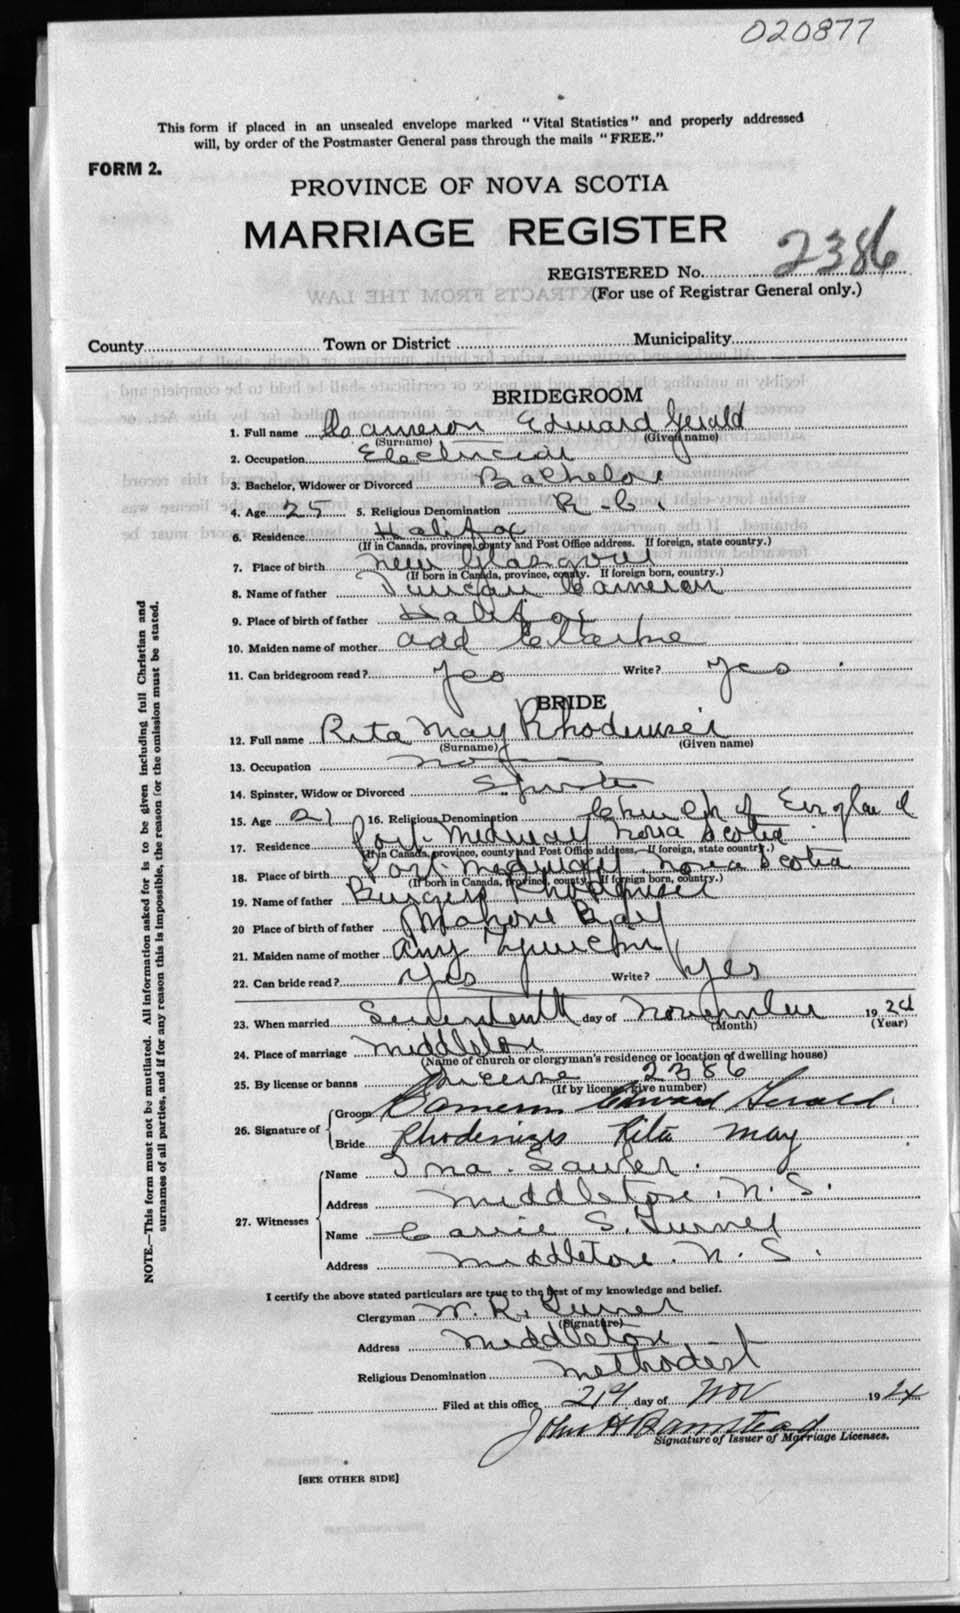 020877
This form if placed in an unsealed envelope marked "Vital Statistics" and properly addressed
will, by order of the Postmaster General pass through the mails "FREE."
FORM 2.
PROVINCE OF NOVA SCOTIA
MARRIAGE REGISTER
REGISTERED No. 2386
(For use of Registrar General only.)
County Town or District Municipality
BRIDEGROOM
1. Full name Cameron Edward Gerald
(Surname) (Given name)
2. Occupation Electrician
3. Bachelor, Widower or Divorced Bachelor
4. Age 25 5. Religious Denomination R. C.
6. Residence Halifax
(If in Canada, province, county and Post Office address. If foreign, state country.)
7. Place of birth New Glasgow
(If born in Canada, province, county. If foreign born, country.)
8. Name of father Duncan Cameron
9. Place of birth of father Halifax
10. Maiden name of mother Add Clarke
11. Can bridegroom read? Yes Write? Yes
BRIDE
12. Full name Rita May Rhodeniser
(Surname) (Given name)
13. Occupation
14. Spinster, Widow or Divorced Spinster
15. Age 21 16. Religious Denomination Church of England
17. Residence Port Medway Nova Scotia
(If in Canada, province, county and Post Office address. If foreign, state country.)
18. Place of birth Port Medway Nova Scotia
(If born in Canada, province, county. If foreign born, country.)
19. Name of father Burgess Rhodeniser
20 Place of birth of father Mahone Bay
21. Maiden name of mother Amy
22. Can bride read? Yes Write? Yes
23. When married Seventeenth day of November 1924
(Month) (Year)
24. Place of marriage Middleton
(Name of church or clergyman's residence or location of dwelling house)
25. By license or banns License 2386
(If by license, give number)
26. Signature of Groom Cameron Edward Gerald.
Bride Rhodenizer Rita May
27. Witnesses Name Ina Sawler.
Address Middleton. N. S.
Name Carrie S. Turner
Address Middleton. N. S.
I certify the above stated particulars are true to the best of my knowledge and belief.
Clergyman W. R. Turner
(Signature)
Address Middleton
Religious Denomination Methodist
Filed at this office 21st day of Nov 1924
John H Bamstead
Signature of Issuer of Marriage Licenses.
[SEE OTHER SIDE]
NOTE.—This form must not be mutilated. All information asked for is to be given including full Christian and
surnames of all parties, and if for any reason this is impossible, the reason for the omission must be stated.